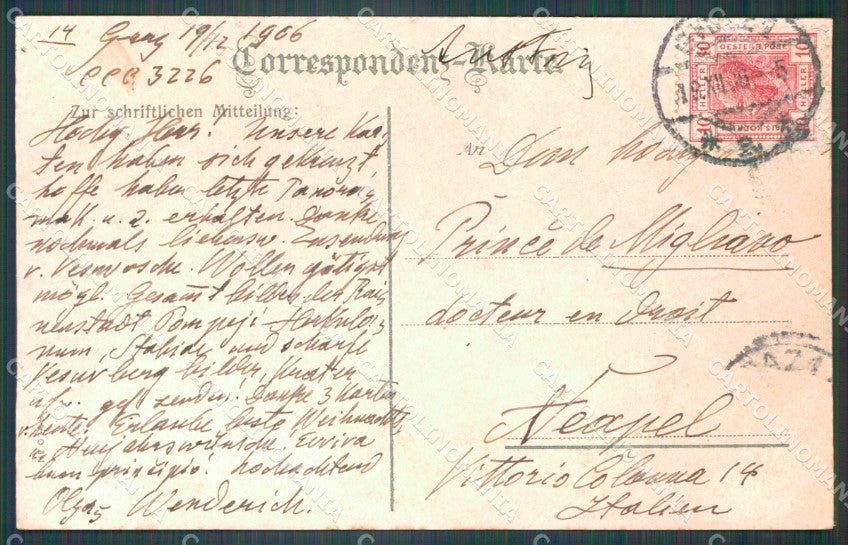 14 Graz 19/12 1906
CCC 3226
Correspondenz-Karte
Austria
Zur schriftlichen Mitteilung:
Hochg. Herr! Unsere Kar-
ten haben sich gekreuzt,
hoffe haben letzte Panora-
mak. u. 2. erhalten. Danke
nochmals liebensw. Zusendung
v. Vesuvosche. Wollen gütigst
mögl. Gesamt bilder der Ruin
neustadt Pompeji Herkula-
num, Stabiae und scharfe
Vesuv berg bilder, Krater
u.s.w. gefl. senden! Danke 3 Karten
v. heute. Erlaube beste Weihnachts
u. Neujahrswünsche. Evviva
buon principio. hochachtend
Olga Wenderich.
An Dem hochg
Prince de Migliano
docteur en droit
Neapel
Vittorio Colonna 14
Italien
10 OESTERR. POST 10
HELLER HELLER
10 10
CARTOLINOMANIA